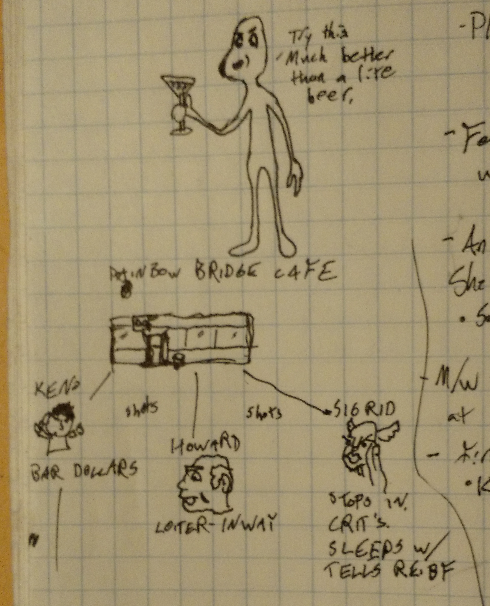 Try this
Much better
than a lite
beer.
RAINBOW BRIDGE CAFE
KENO
BAR DOLLARS
shots
shots
HOWARD
LOITER-IN WAY
SIGRID
STOPS IN.
CRIT'S.
SLEEPS W/
TELLS RE: BF
- An
She
- M/W
at